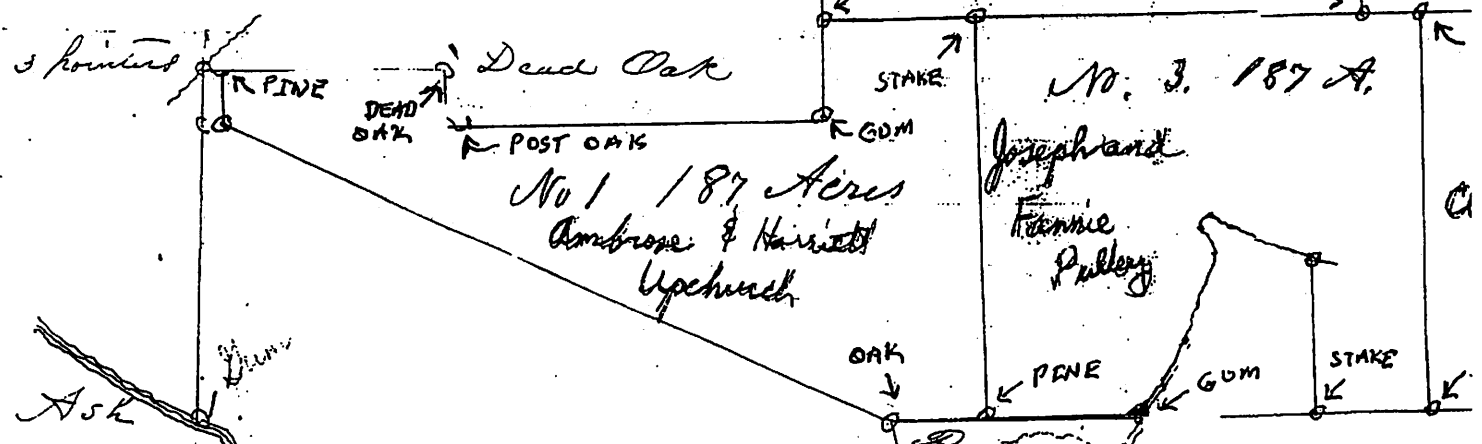 3 pointers
PINE
DEAD
OAK
Dead Oak
POST OAK
GUM
STAKE
No. 3. 187 A.
Joseph and
Fannie
Pulley
No 1 187 Acres
Ambrose & Harriett
Upchurch
Ash
OAK
PINE
GUM
STAKE